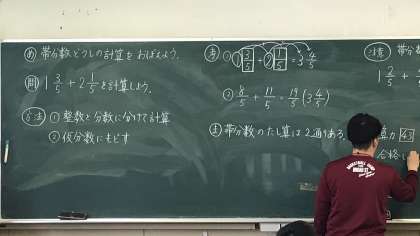 め 帯分数どうしの計算をおぼえよう。
問 1 3/5 + 2 1/5 を計算しよう。
方法 ① 整数と分数に分けて計算
② 仮分数にもどす
考 ① 1 3/5 + 2 1/5 = 3 4/5
② 8/5 + 11/5 = 19/5 (3 4/5)
ま 帯分数のたし算は2通りある。
1 2/5 +
算力 43
合格